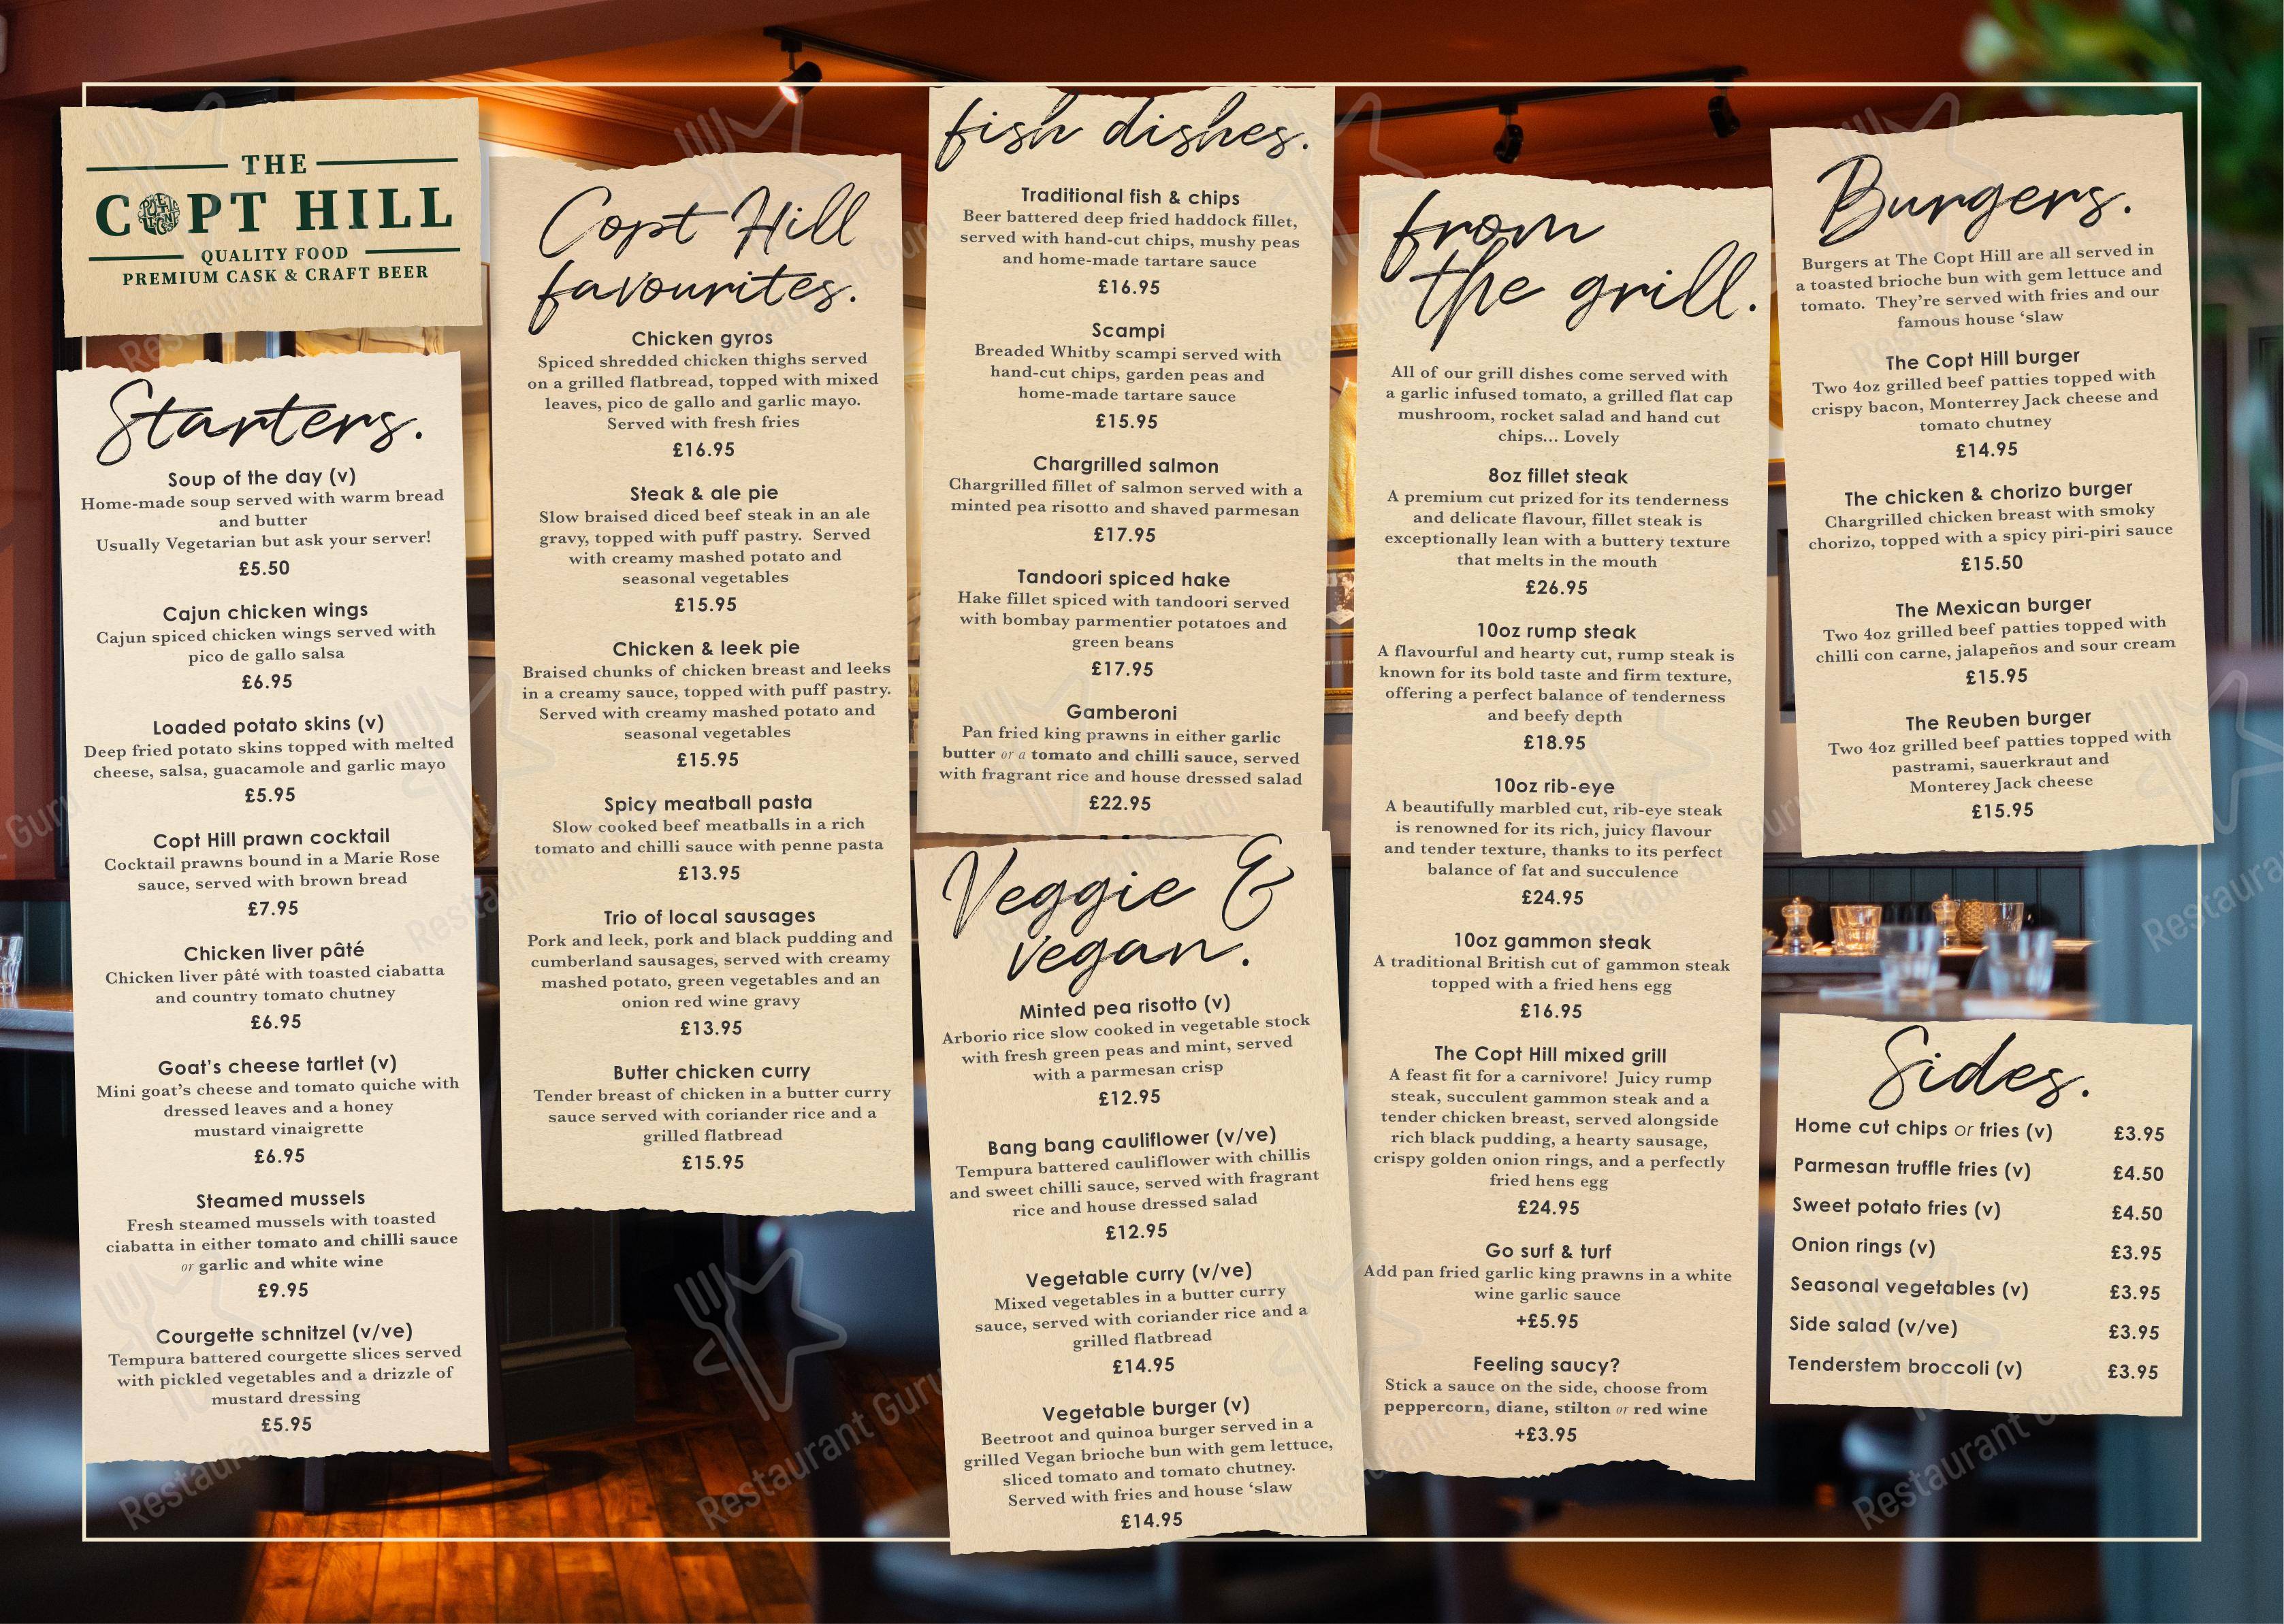 THE
COPT HILL
QUALITY FOOD
PREMIUM CASK & CRAFT BEER
Starters.
Soup of the day (v)
Home-made soup served with warm bread
and butter
Usually Vegetarian but ask your server!
£5.50
Cajun chicken wings
Cajun spiced chicken wings served with
pico de gallo salsa
£6.95
Loaded potato skins (v)
Deep fried potato skins topped with melted
cheese, salsa, guacamole and garlic mayo
£5.95
Copt Hill prawn cocktail
Cocktail prawns bound in a Marie Rose
sauce, served with brown bread
£7.95
Chicken liver pâté
Chicken liver pâté with toasted ciabatta
and country tomato chutney
£6.95
Goat's cheese tartlet (v)
Mini goat's cheese and tomato quiche with
dressed leaves and a honey
mustard vinaigrette
£6.95
Steamed mussels
Fresh steamed mussels with toasted
ciabatta in either tomato and chilli sauce
or garlic and white wine
£9.95
Courgette schnitzel (v/ve)
Tempura battered courgette slices served
with pickled vegetables and a drizzle of
mustard dressing
£5.95
Copt Hill
favourites.
Chicken gyros
Spiced shredded chicken thighs served
on a grilled flatbread, topped with mixed
leaves, pico de gallo and garlic mayo.
Served with fresh fries
£16.95
Steak & ale pie
Slow braised diced beef steak in an ale
gravy, topped with puff pastry. Served
with creamy mashed potato and
seasonal vegetables
£15.95
Chicken & leek pie
Braised chunks of chicken breast and leeks
in a creamy sauce, topped with puff pastry.
Served with creamy mashed potato and
seasonal vegetables
£15.95
Spicy meatball pasta
Slow cooked beef meatballs in a rich
tomato and chilli sauce with penne pasta
£13.95
Trio of local sausages
Pork and leek, pork and black pudding and
cumberland sausages, served with creamy
mashed potato, green vegetables and an
onion red wine gravy
£13.95
Butter chicken curry
Tender breast of chicken in a butter curry
sauce served with coriander rice and a
grilled flatbread
£15.95
fish dishes.
Traditional fish & chips
Beer battered deep fried haddock fillet,
served with hand-cut chips, mushy peas
and home-made tartare sauce
£16.95
Scampi
Breaded Whitby scampi served with
hand-cut chips, garden peas and
home-made tartare sauce
£15.95
Chargrilled salmon
Chargrilled fillet of salmon served with a
minted pea risotto and shaved parmesan
£17.95
Tandoori spiced hake
Hake fillet spiced with tandoori served
with bombay parmentier potatoes and
green beans
£17.95
Gamberoni
Pan fried king prawns in either garlic
butter or a tomato and chilli sauce, served
with fragrant rice and house dressed salad
£22.95
Veggie &
vegan.
Minted pea risotto (v)
Arborio rice slow cooked in vegetable stock
with fresh green peas and mint, served
with a parmesan crisp
£12.95
Bang bang cauliflower (v/ve)
Tempura battered cauliflower with chillis
and sweet chilli sauce, served with fragrant
rice and house dressed salad
£12.95
Vegetable curry (v/ve)
Mixed vegetables in a butter curry
sauce, served with coriander rice and a
grilled flatbread
£14.95
Vegetable burger (v)
Beetroot and quinoa burger served in a
grilled Vegan brioche bun with gem lettuce,
sliced tomato and tomato chutney.
Served with fries and house 'slaw
£14.95
from
the grill.
All of our grill dishes come served with
a garlic infused tomato, a grilled flat cap
mushroom, rocket salad and hand cut
chips... Lovely
8oz fillet steak
A premium cut prized for its tenderness
and delicate flavour, fillet steak is
exceptionally lean with a buttery texture
that melts in the mouth
£26.95
10oz rump steak
A flavourful and hearty cut, rump steak is
known for its bold taste and firm texture,
offering a perfect balance of tenderness
and beefy depth
£18.95
10oz rib-eye
A beautifully marbled cut, rib-eye steak
is renowned for its rich, juicy flavour
and tender texture, thanks to its perfect
balance of fat and succulence
£24.95
10oz gammon steak
A traditional British cut of gammon steak
topped with a fried hens egg
£16.95
The Copt Hill mixed grill
A feast fit for a carnivore! Juicy rump
steak, succulent gammon steak and a
tender chicken breast, served alongside
rich black pudding, a hearty sausage,
crispy golden onion rings, and a perfectly
fried hens egg
£24.95
Go surf & turf
Add pan fried garlic king prawns in a white
wine garlic sauce
+£5.95
Feeling saucy?
Stick a sauce on the side, choose from
peppercorn, diane, stilton or red wine
+£3.95
Burgers.
Burgers at The Copt Hill are all served in
a toasted brioche bun with gem lettuce and
tomato. They're served with fries and our
famous house 'slaw
The Copt Hill burger
Two 4oz grilled beef patties topped with
crispy bacon, Monterrey Jack cheese and
tomato chutney
£14.95
The chicken & chorizo burger
Chargrilled chicken breast with smoky
chorizo, topped with a spicy piri-piri sauce
£15.50
The Mexican burger
Two 4oz grilled beef patties topped with
chilli con carne, jalapeños and sour cream
£15.95
The Reuben burger
Two 4oz grilled beef patties topped with
pastrami, sauerkraut and
Monterey Jack cheese
£15.95
Sides.
Home cut chips or fries (v) £3.95
Parmesan truffle fries (v) £4.50
Sweet potato fries (v) £4.50
Onion rings (v) £3.95
Seasonal vegetables (v) £3.95
Side salad (v/ve) £3.95
Tenderstem broccoli (v) £3.95
Restaurant Guru